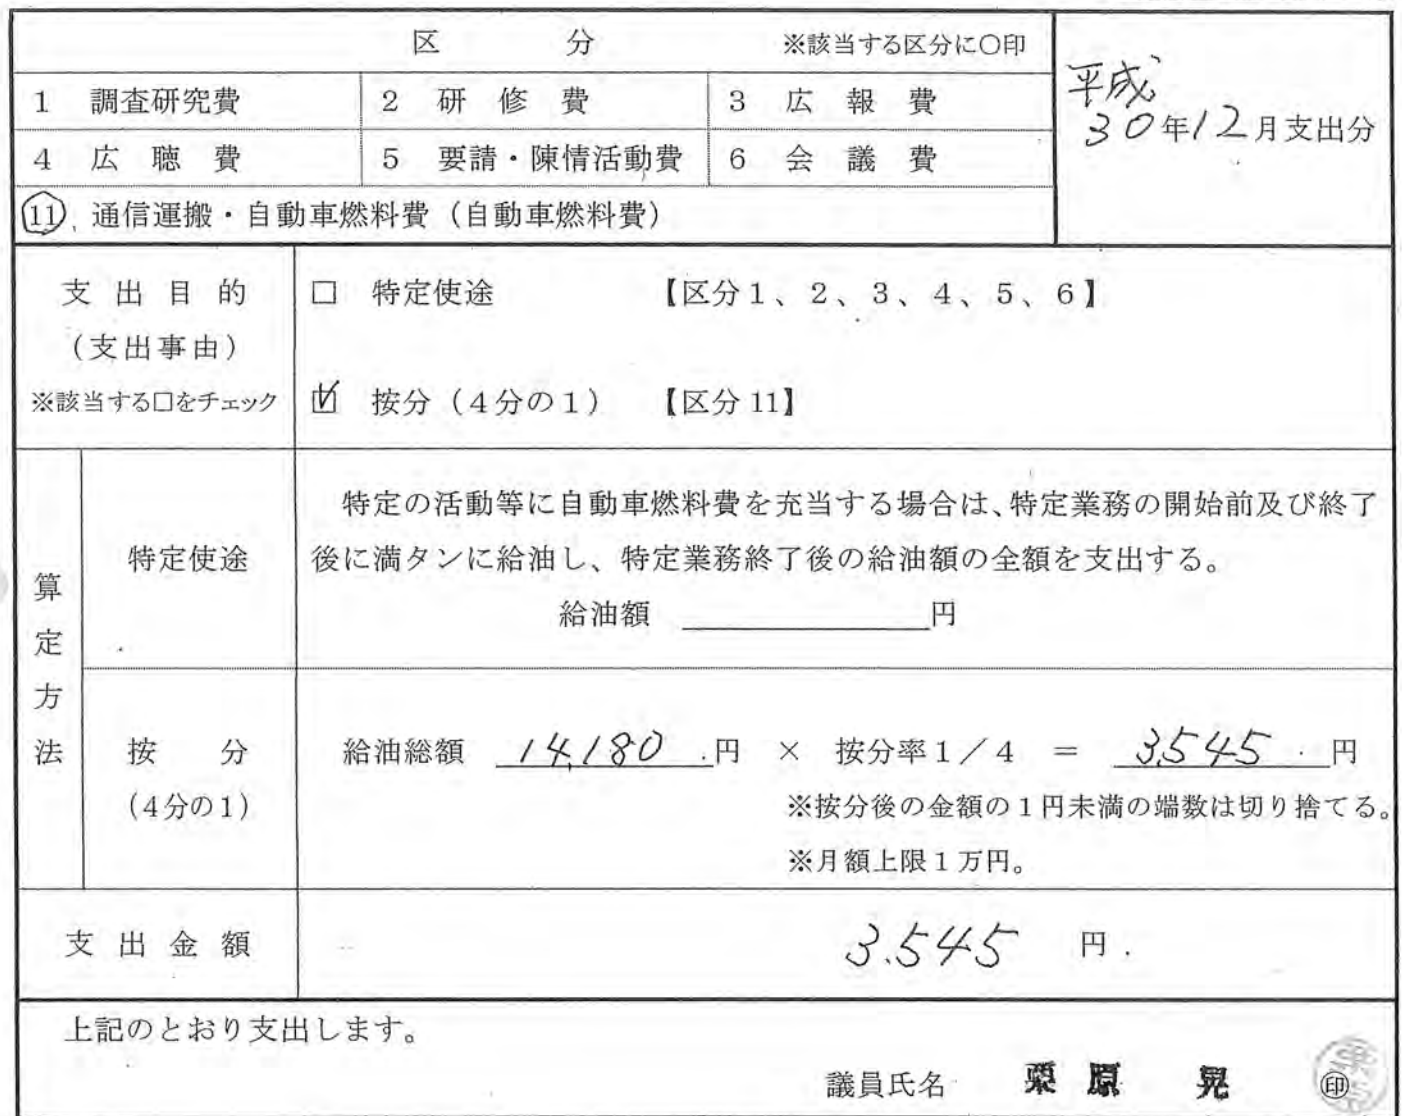 区　分　※該当する区分に〇印
平成
30年12月支出分
1 調査研究費　2 研修費　3 広報費
4 広聴費　5 要請・陳情活動費　6 会議費
11 通信運搬・自動車燃料費（自動車燃料費）
支出目的
（支出事由）
※該当する□をチェック
□ 特定使途　【区分1、2、3、4、5、6】
☑ 按分（4分の1）　【区分11】
算定方法
特定使途
特定の活動等に自動車燃料費を充当する場合は、特定業務の開始前及び終了
後に満タンに給油し、特定業務終了後の給油額の全額を支出する。
給油額　円
按分
（4分の1）
給油総額 14,180 円 × 按分率1／4 ＝ 3,545 円
※按分後の金額の1円未満の端数は切り捨てる。
※月額上限1万円。
支出金額　3,545 円
上記のとおり支出します。
議員氏名　栗原　晃　㊞